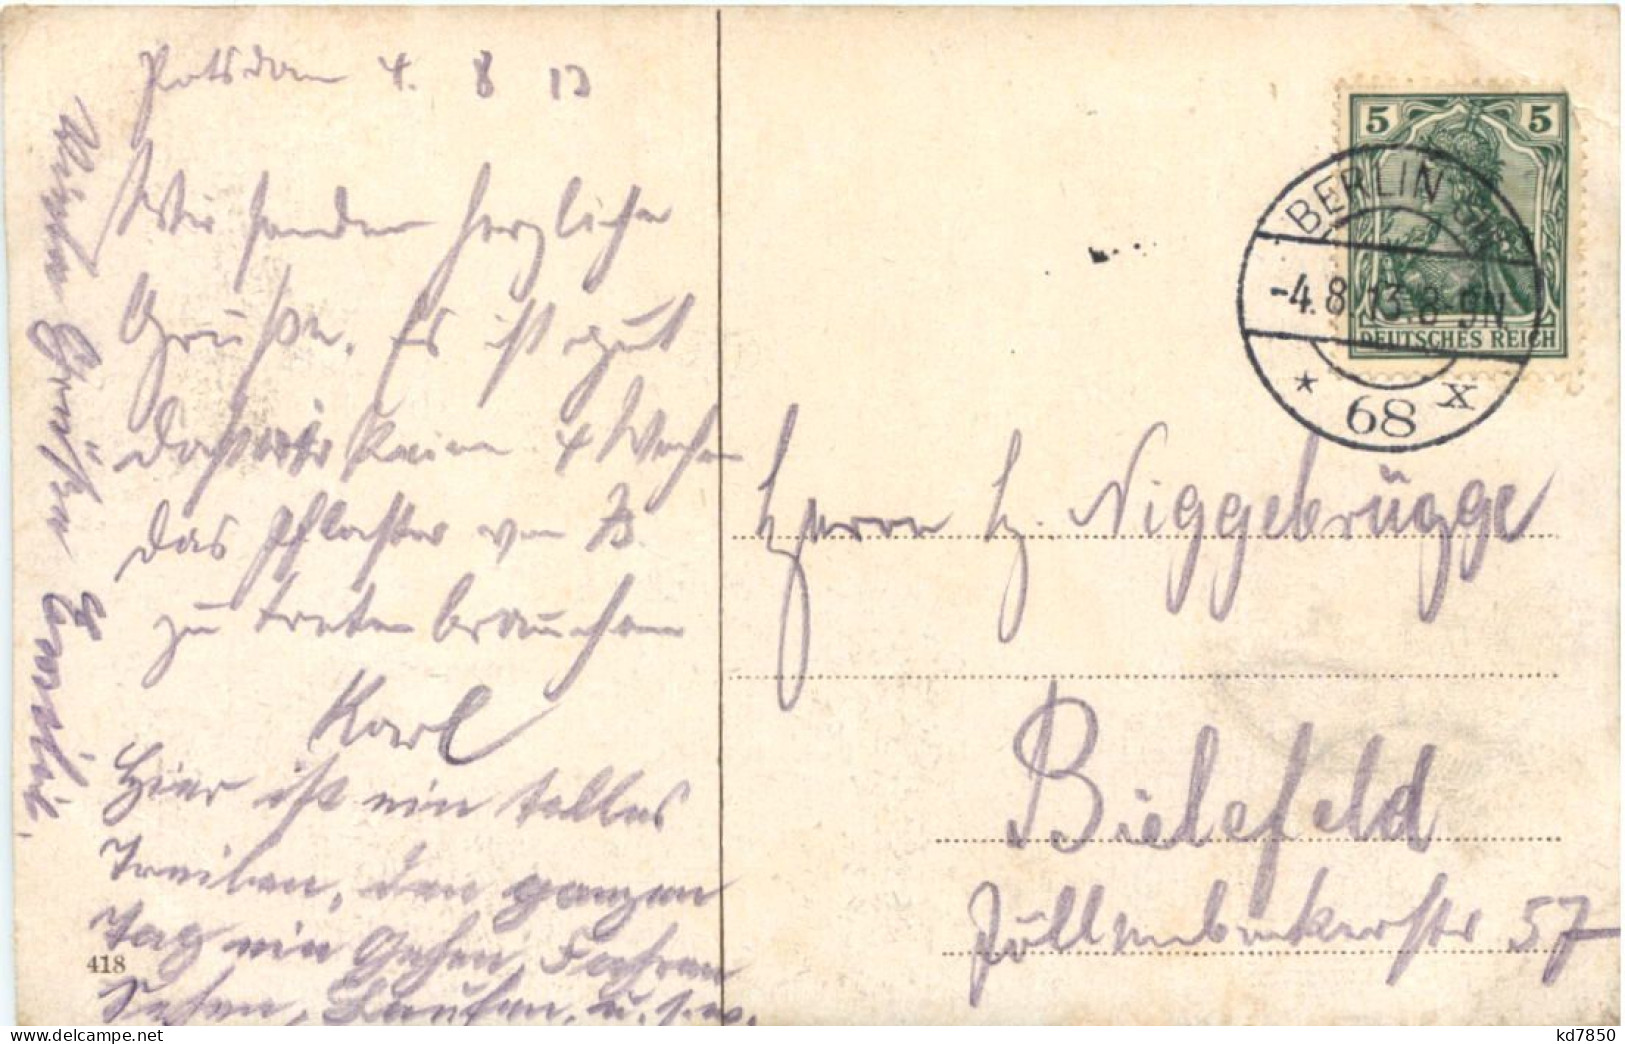 Potsdam 4. 8 13
Wir senden herzliche
Grüße. Es ist gut
daß wir keine 4 Wochen
das Pflaster von B.
zu treten brauchen
Karl
Hier ist ein tolles
Treiben, den ganzen
Tag ein Gehen, Fahren
Sehen, Laufen, u.s.w.
Grüßen
418
5 5
DEUTSCHES REICH
BERLIN SW
-4.8.13.8-9N
* 68 x
Herrn H. Niggebrügge
Bielefeld
Jöllenbeckerstr 57
kd7850